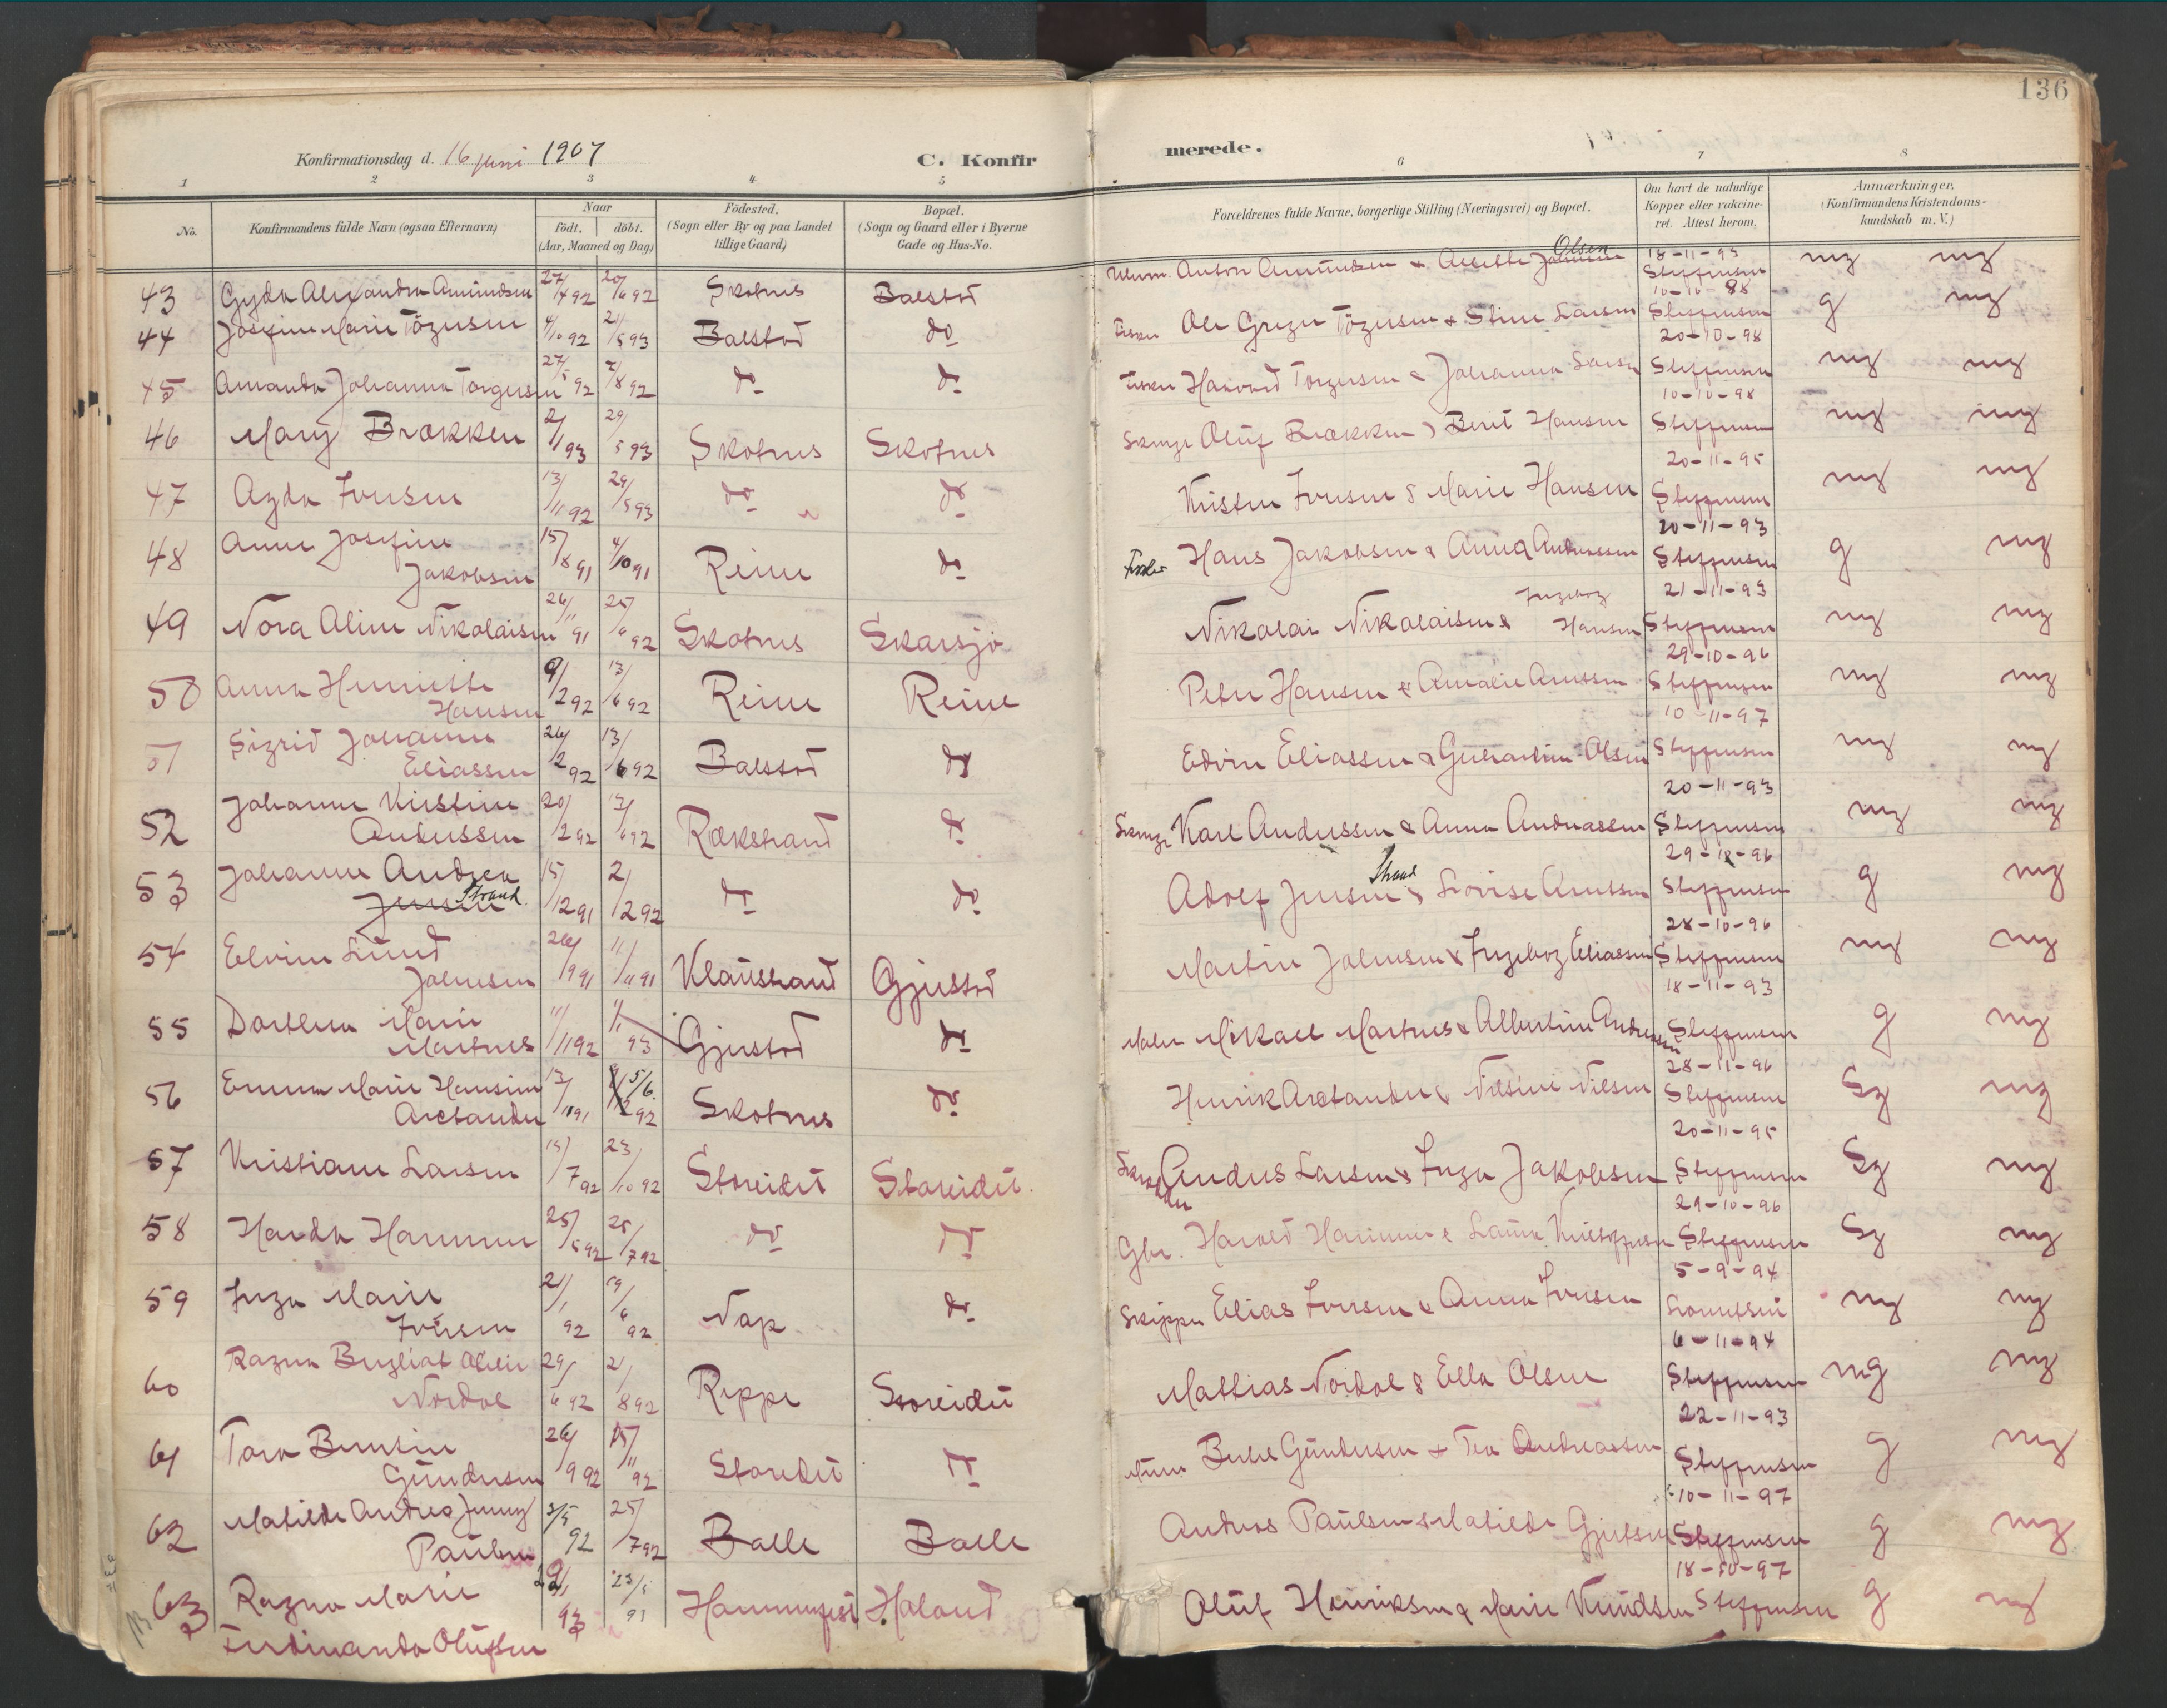 136
Konfirmationsdag d. 16 juni 1907
C. Konfir
merede.
1 2 3 4 5 6 7 8
No.
Konfirmandens fulde Navn (ogsaa Efternavn)
Naar
født. døbt.
(Aar, Maaned og Dag)
Födested.
(Sogn eller By og paa Landet
tillige Gaard)
Bopæl.
(Sogn og Gaard eller i Byerne
Gade og Hus-No.
Forældrenes fulde Navne, borgerlige Stilling (Næringsvei) og Bopæl.
Om havt de naturlige
Kopper eller vakcine-
ret. Attest herom.
Anmærkninger,
(Konfirmandens Kristendoms-
kundskab m. V.)
43 Gyda Alexandra Amundsen 27/4 92 20/6 92 Skotnes Balstad Anton Amundsen & Olsen 18-11-93 Steffensen mg mg
44 Josefine Marie Tözersen 4/10 92 2/5 93 Balstad do Fisker Ole Greger Tözersen & Stine Larsen 10-10-98 Steffensen g mg
45 Amanda Johanna Torgersen 27/5 92 7/8 92 do do Fisker Haavard Torgersen & Johanna Larsen 20-10-98 Steffensen mg mg
46 Mary Brækken 2/1 93 29/5 93 Skotnes Skotnes Oluf Brækken & Berit Hansen 10-10-98 Steffensen mg mg
47 Agda Iversen 13/11 92 29/5 93 do do Kristen Iversen & Marie Hansen 20-11-95 Steffensen mg mg
48 Anne Josefine
Jakobsen 15/8 91 4/10 91 Reine do Fisker Hans Jakobsen & Anna Andreassen 20-11-93 Steffensen g mg
49 Nora Aline Nikolaisen 26/11 91 25/6 92 Skotnes Skarsjö Nikolai Nikolaisen & Ingeborg
Hansen 21-11-93 Steffensen mg mg
50 Anna Henriette
Hansen 9/2 92 13/6 92 Reine Reine Peter Hansen & Amalie Arntsen 29-10-96 Steffensen mg mg
51 Sigrid Johanne
Eliassen 26/2 92 13/6 92 Balstad do Edvin Eliassen & Olsen 10-11-97 Steffensen mg mg
52 Johanne Kirstine
Andersen 20/2 92 13/6 92 Rækstrand do Karl Andersen & Anna Andreassen 20-11-93 Steffensen mg mg
53 Johanne Andrea
Jensen Strand 15/12 91 2/12 92 do do Adolf Jensen Strand & Lovise Arntsen 29-10-96 Steffensen g mg
54 Elvine Lund
Johnsen 26/9 91 11/11 91 Klausstrand Gjerstad Martin Johnsen & Ingeborg Eliassen 28-10-96 Steffensen mg mg
55 Dorthea Marie
Martnes 11/11 92 1/1 93 Gjerstad do Maler Mikael Martnes & Albertine Andreassen 18-11-93 Steffensen g mg
56 Emma Marie Hansine
Arctander 13/11 91 5/6 92 Skotnes do Henrik Arctander & Nilsine Nilsen 28-11-96 Steffensen Sg mg
57 Kristiane Larsen 15/7 92 23/10 92 Storeidet Storeidet Anders Larsen & Inga Jakobsen 20-11-95 Steffensen Sg mg
58 Harda Hammer 25/5 92 25/7 92 do do Gbr. Harald Hammer & Laura Kristoffersen 29-10-96 Steffensen Sg mg
59 Inga Marie
Iversen 21/1 92 19/6 92 Nap do Skipper Elias Iversen & Anna Iversen 5-9-94 mg mg
60 Ragna
Nordal 29/6 92 21/8 92 Reppe Storeidet Mattias Nordal & Ella Olsen 6-11-94 Steffensen mg mg
61 Tora Bentine
Gundersen 26/9 92 15/11 92 Storeidet do Gundersen & Andreassen 22-11-93 Steffensen g mg
62 Matilde Andrea Jenny
Paulsen 3/5 92 25/7 92 Balle Balle Anders Paulsen & Matilde 10-11-97 Steffensen g mg
63 Ragna Marie
Ferdinanda Olufsen 93 23/5 91 Hammerfest Haland Oluf Henriksen & Marie Knudsen 18-10-97 Steffensen g mg